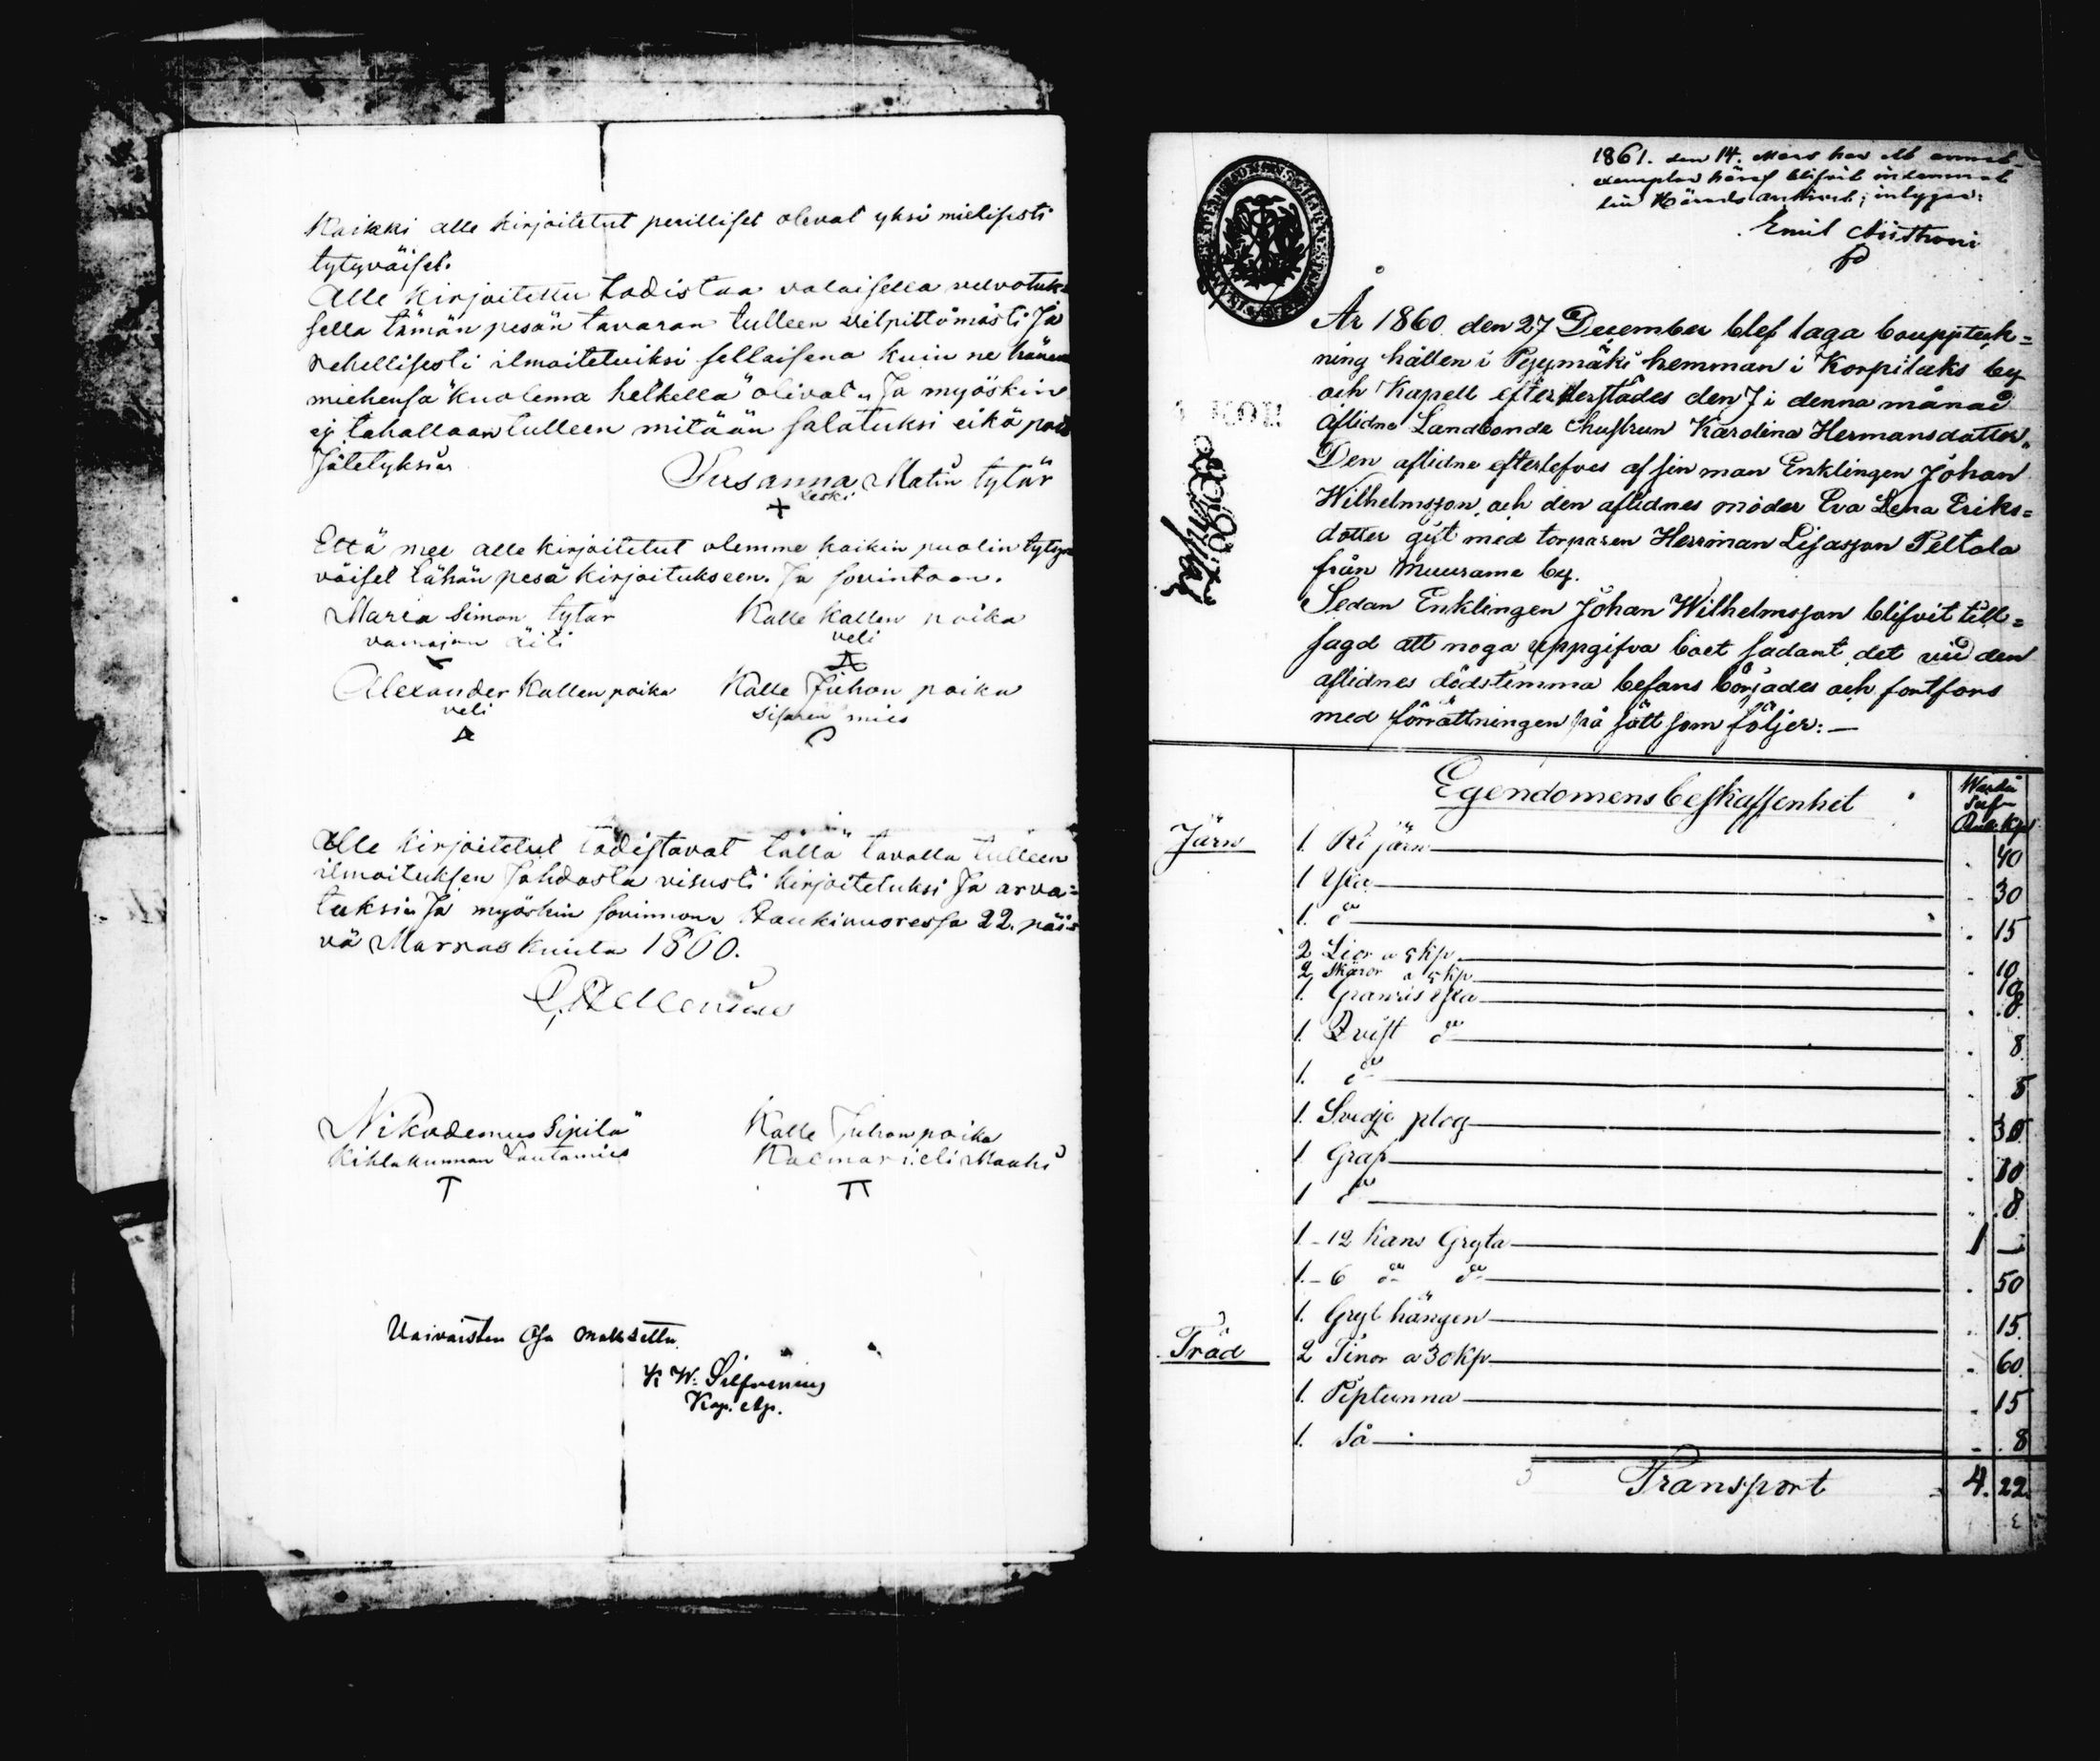 Kaikki alle kirjoitetut perilliset olevat yksi mielisesti
tytyväiset.
Alle kirjoitettu todistaa valaisella velvotuk-
sella tämän pesän tavaran tulleen vilpittömästi Ja
rehellisesti ilmoitetuiksi sellaisena kuin ne hänen
miehensä kuolema hetkellä olivat. Ja myöskin
ej tahallaan tulleen mitään salatuksi eikä pois
Jätetyksi
Susanna Matin tytär
Leski
Että mee alle kirjoitetut olemme kaikin puolin tyty-
väiset tähän pesä kirjoitukseen. Ja sovintoon.
Maria Simon tytär Kalle Kallen poika
vainajan äiti veli
Alexander Kallen poika Kalle Juhon poika
veli Sisaren mies
Alle kirjoitetut todistavat tällä tavalla tulleen
ilmoituksen Johdosta visusti kirjoitetuksi Ja arva=
tuksi. Ja myöskin sovinnon. Haukivuoressa 22. päi-
vä Marraskuuta 1860.
Nikodemus Sipilä Kalle Juhon poika
Kihlakunnan Lautamies
Vaivaisten Osa maksettu
K W. Silfvenius
Kap. Ap.
1861. den 14. Mars har ett annat
exemplar häraf blifvit inlemnat
till Härads arkivet; intygar:
Emil
År 1860 den 27 December blef laga bouppteck=
ning hållen i Pyymäki hemman i Korpilaks by
och Kapell efter härstädes den 7 i denna månad
aflidna Landbonde hustrun Karolina Hermansdotter.
Den aflidne efterlefves af sin man Enklingen Johan
Wilhelmsson och den aflidnes moder Eva Lena Eriks=
dotter gift med torparen Herman Lisasson Peltola
från Muurame by.
Sedan Enklingen Johan Wilhelmsson blifvit till=
sagd att noga uppgifva boet sådant det vid den
aflidnes dödstimma befans börjades och fortfors
med förrättningen på sätt som följer:—
Egendomens beskaffenhet
Järn 1. Ri järn 40
1 Yxa 30
1. do 15
2 Lior a 5 kp 10
2 Skäror a 5 kp 10
1. Granris yxa 8
1. Qvist do 8
1. do 5
1. Svedje plog 30
1 Graf 10
1 do 8
1 - 12 Kans Gryta 1 —
1. - 6 do do 50
1. Gryt hängen 15
Träd 2 Tinor a 30 kp 60
1. Piptunna 15
1. Så 8
Transport 4. 22